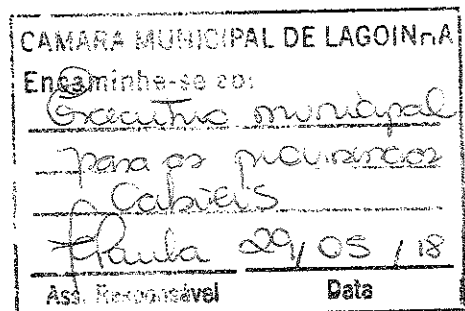 CAMARA MUNICIPAL DE LAGOINHA
Encaminhe-se ao:
Executivo municipal
para as providências
Cabíveis
Paula 29/05/18
Ass. Responsável Data